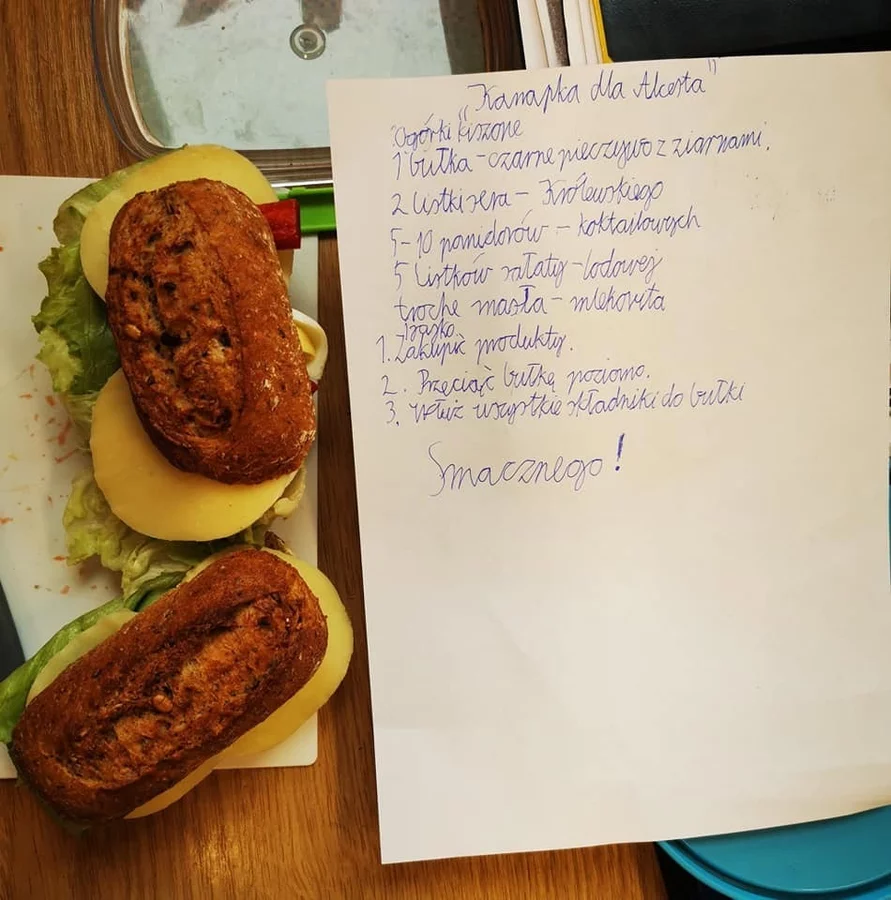 "Kanapka dla Alcesta"
Ogórki kiszone
1 bułka - czarne pieczywo z ziarnami.
2 listki sera - Królewskiego
5-10 pomidorów - koktajlowych
5 listków sałaty - lodowej
trochę masła - mlekovita
Jajko.
1. Zakupić produkty.
2. Przeciąć bułkę poziomo.
3. Włóż wszystkie składniki do bułki
Smacznego!